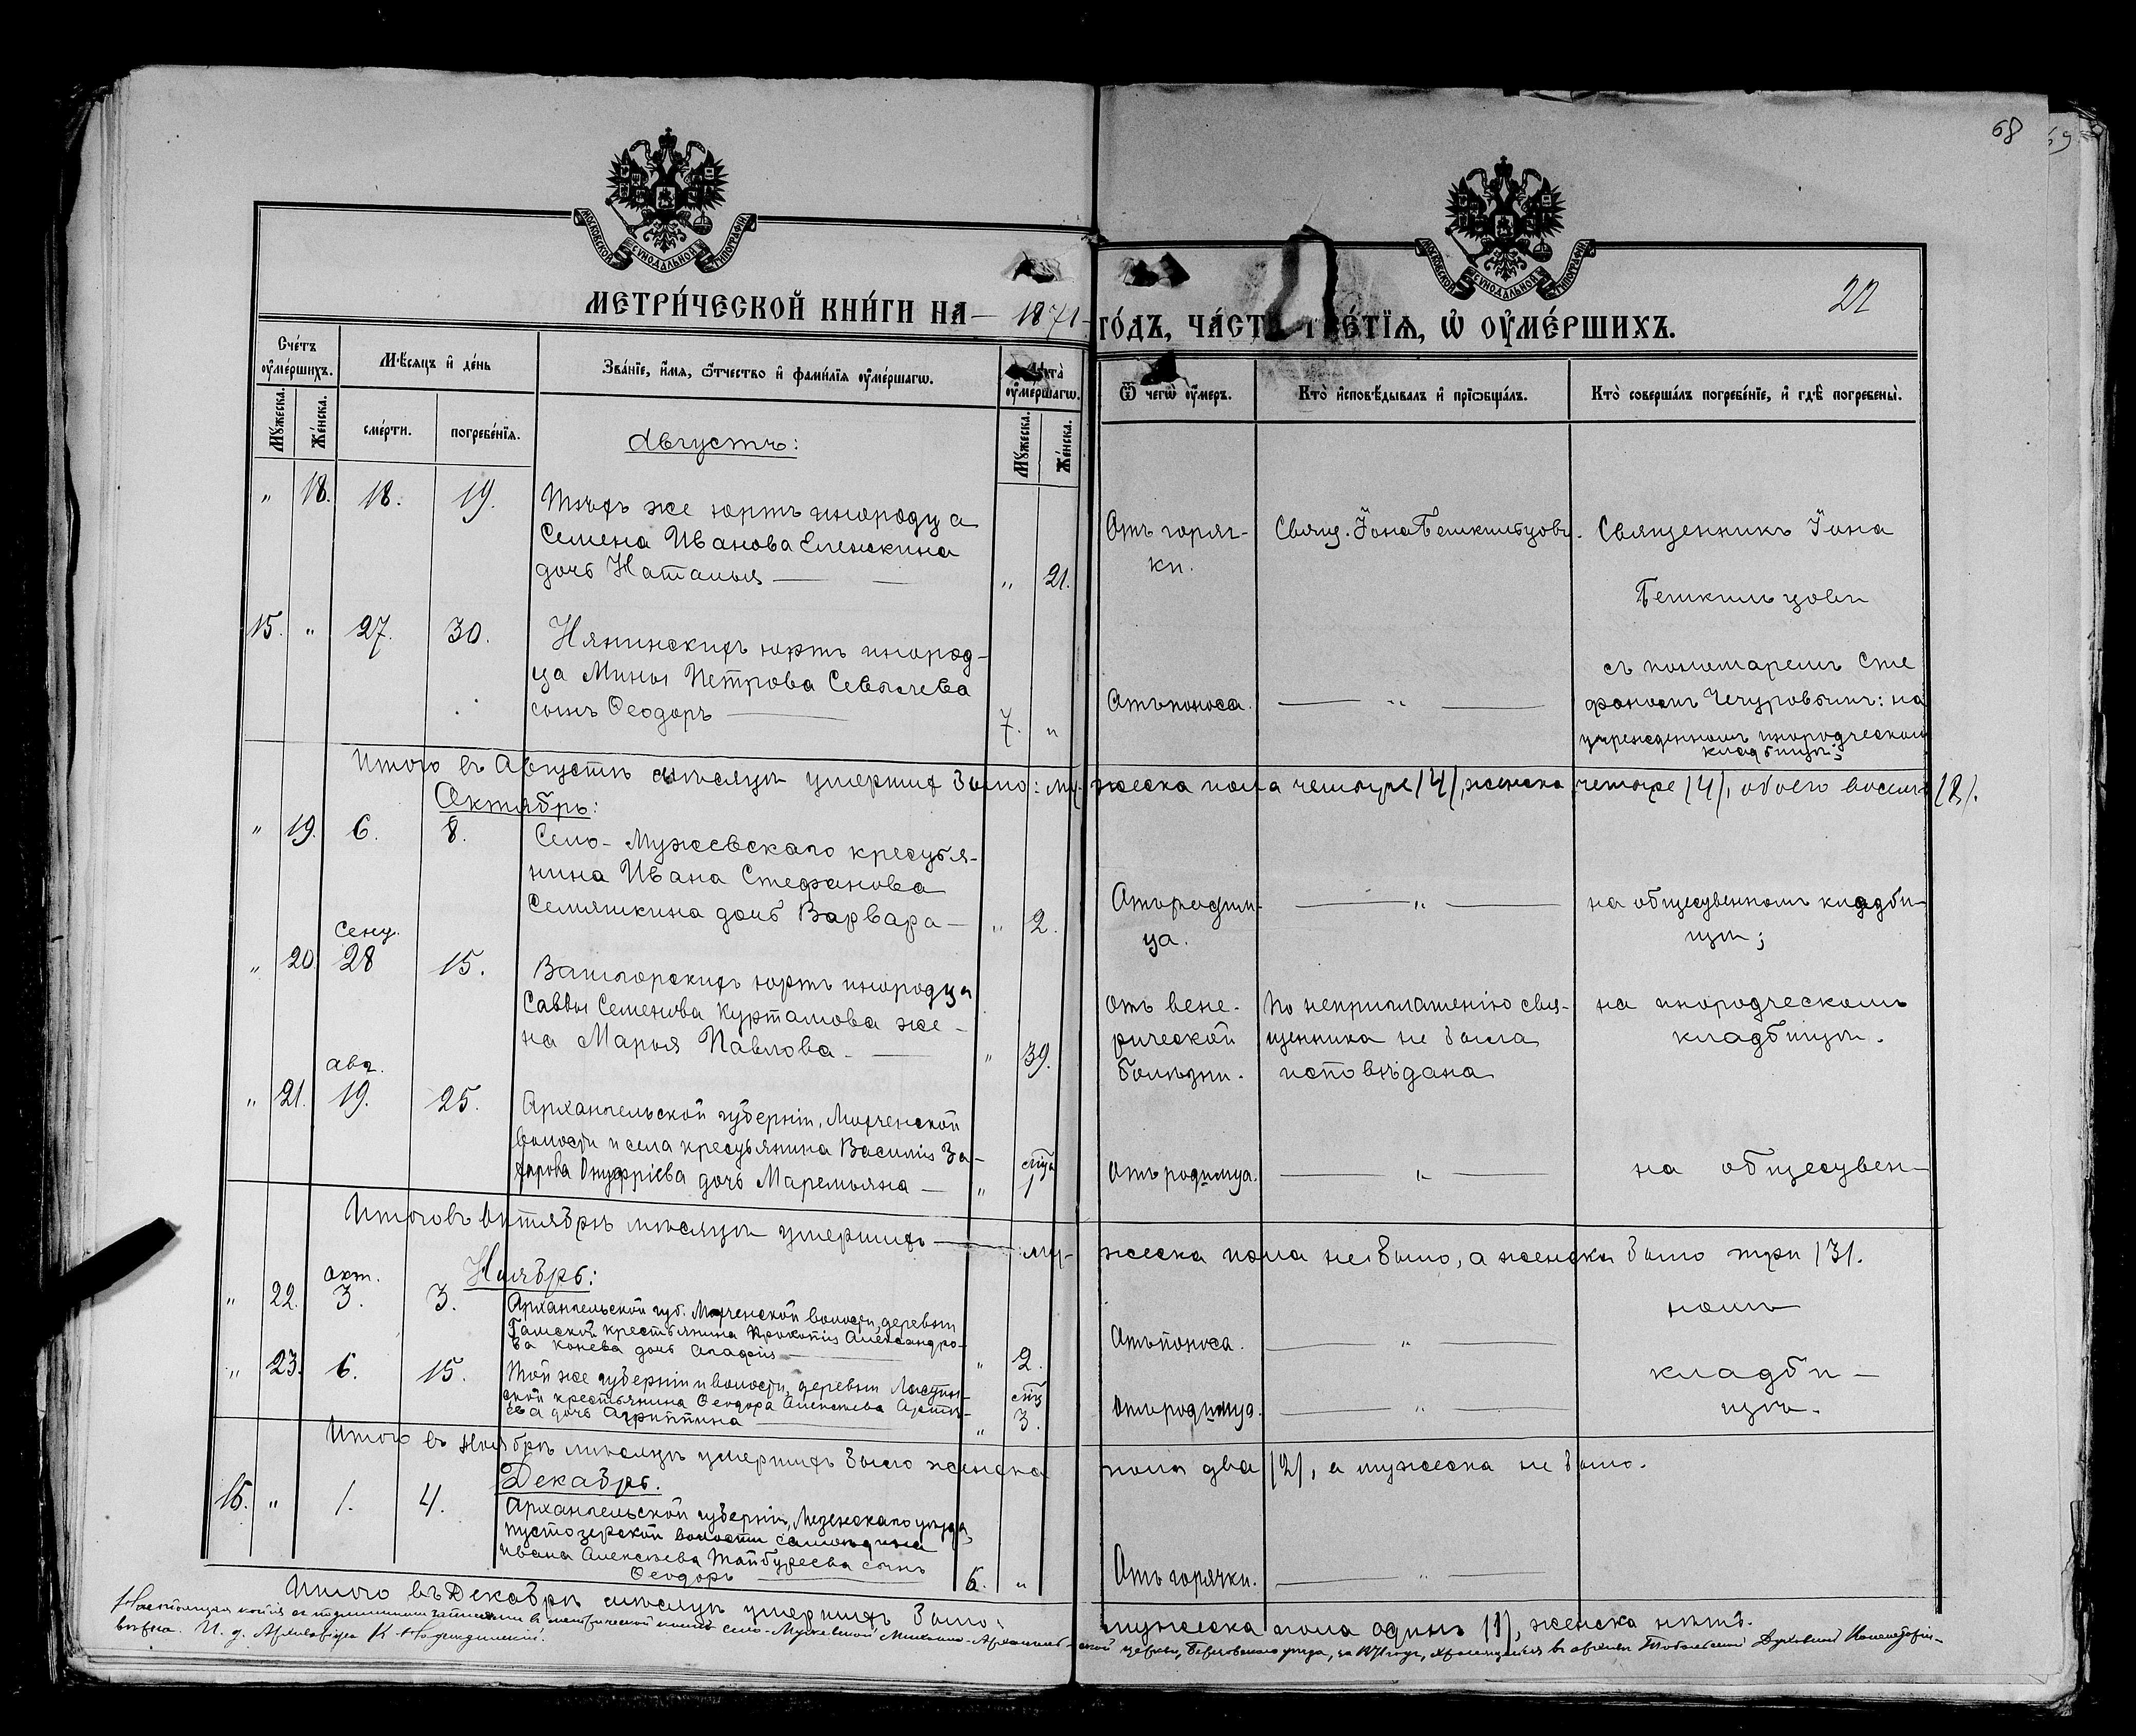 68
59
МОСКОВСКОЙ СѴНОДАЛЬНОЙ ТИПОГРАФІИ
МОСКОВСКОЙ СѴНОДАЛЬНОЙ ТИПОГРАФІИ
22
МЕТРИ́ЧЕСКОЙ КНИ́ГИ НА 1871 ГО́ДЪ, ЧА́СТЬ ТРЕ́ТІѦ, Ѡ҆ ОУ҆МЕ́РШИХЪ.
Сче́тъ оу҆ме́ршихъ.
Мѣ́сяцъ и҆ де́нь
Зва́нїе, и҆́мя, ѻ҆́тчество и҆ фами́лїя оу҆ме́ршагѡ.
Лѣ́та оу҆ме́ршагѡ.
Ѿ чегѡ̀ оу҆́меръ.
Кто̀ и҆сповѣ́дывалъ и҆ прїѡбща́лъ.
Кто̀ соверша́лъ погребе́нїе, и҆ гдѣ̀ погребены̀.
Мꙋ́жеска.
Же́нска.
сме́рти.
погребе́нїя.
Мꙋ́жеска.
Же́нска.
Августъ:
" 18. 18. 19. Тѣхъ же юртъ инородца
Семена Иванова Еленкина
дочь Наталья — " 21.
Отъ горяч-
ки.
Свящ. Іона Бешкильцовъ.
Священникъ Іона
Бешкильцовъ
15. " 27. 30. Нянинскихъ юртъ инород-
ца Мины Петрова Севычева
сынъ Ѳеодоръ — 7. "
Отъ поноса. — " —
съ пономаремъ Сте
фаномъ Чечуровымъ: на
учрежденномъ инородческомъ
кладбищѣ;
Итого въ Августѣ мѣсяцѣ умершихъ было: мужеска пола четыре /4/, женска четыре /4/, обоего восемь /8/.
Октябрь:
" 19. 6. 8. Село-Мужевскаго крестья-
нина Ивана Стефанова
Семяшкина дочь Варвара — " 2.
Отъ родим-
ца.
— " —
на общественномъ кладби-
щѣ;
Сент.
" 20. 28 15. Вашгорскихъ юртъ инородца
Саввы Семенова Куртамова же-
на Марья Павлова — " 39.
Отъ вене-
рической
болѣзни.
По неприглашенію свя-
щенника не была
исповѣдана
на инородческомъ
кладбищѣ.
авг.
" 21. 19. 25. Архангельской губерніи, Мохченской
волости и села крестьянина Василія За-
харова Онуфріева дочь Маремьяна — " 1
Отъ родимца. — " —
на обществен-
Итого въ Октябрѣ мѣсяцѣ умершихъ — мужеска пола не было, а женска было три /3/.
Ноябрь:
окт.
" 22. 3. 3. Архангельской губ. Мохченской волости, деревни
Гамской крестьянина Прокопія Александро-
ва Конева дочь Агафія — " 2.
Отъ поноса. — " —
номъ
" 23. 6. 15. Той же губерніи и волости, деревни
крестьянина Ѳеодора Алексѣева
дочь Агриппина — " 3.
Отъ родимца. — " —
кладби-
щѣ.
Итого въ Ноябрѣ мѣсяцѣ умершихъ было женска пола два /2/, а мужеска не было.
Декабрь.
16. " 1. 4. Архангельской губерніи, Мезенскаго уѣзда,
Пустозерской волости самоѣдина
Ивана Алексѣева Тайбуреева сынъ
Ѳеодоръ — 6. "
Отъ горячки. — " —
Итого въ Декабрѣ мѣсяцѣ умершихъ было: мужеска пола одинъ /1/, женска нѣтъ.
Настоящая копія съ подлинными записями въ метрической книгѣ село-Мужевской Михаило-Архангельской церкви, Березовскаго уѣзда, за 1871 годъ, хранящейся въ архивѣ Тобольской Духовной Консисторіи
вѣрна. И. д. Архиваріуса К.